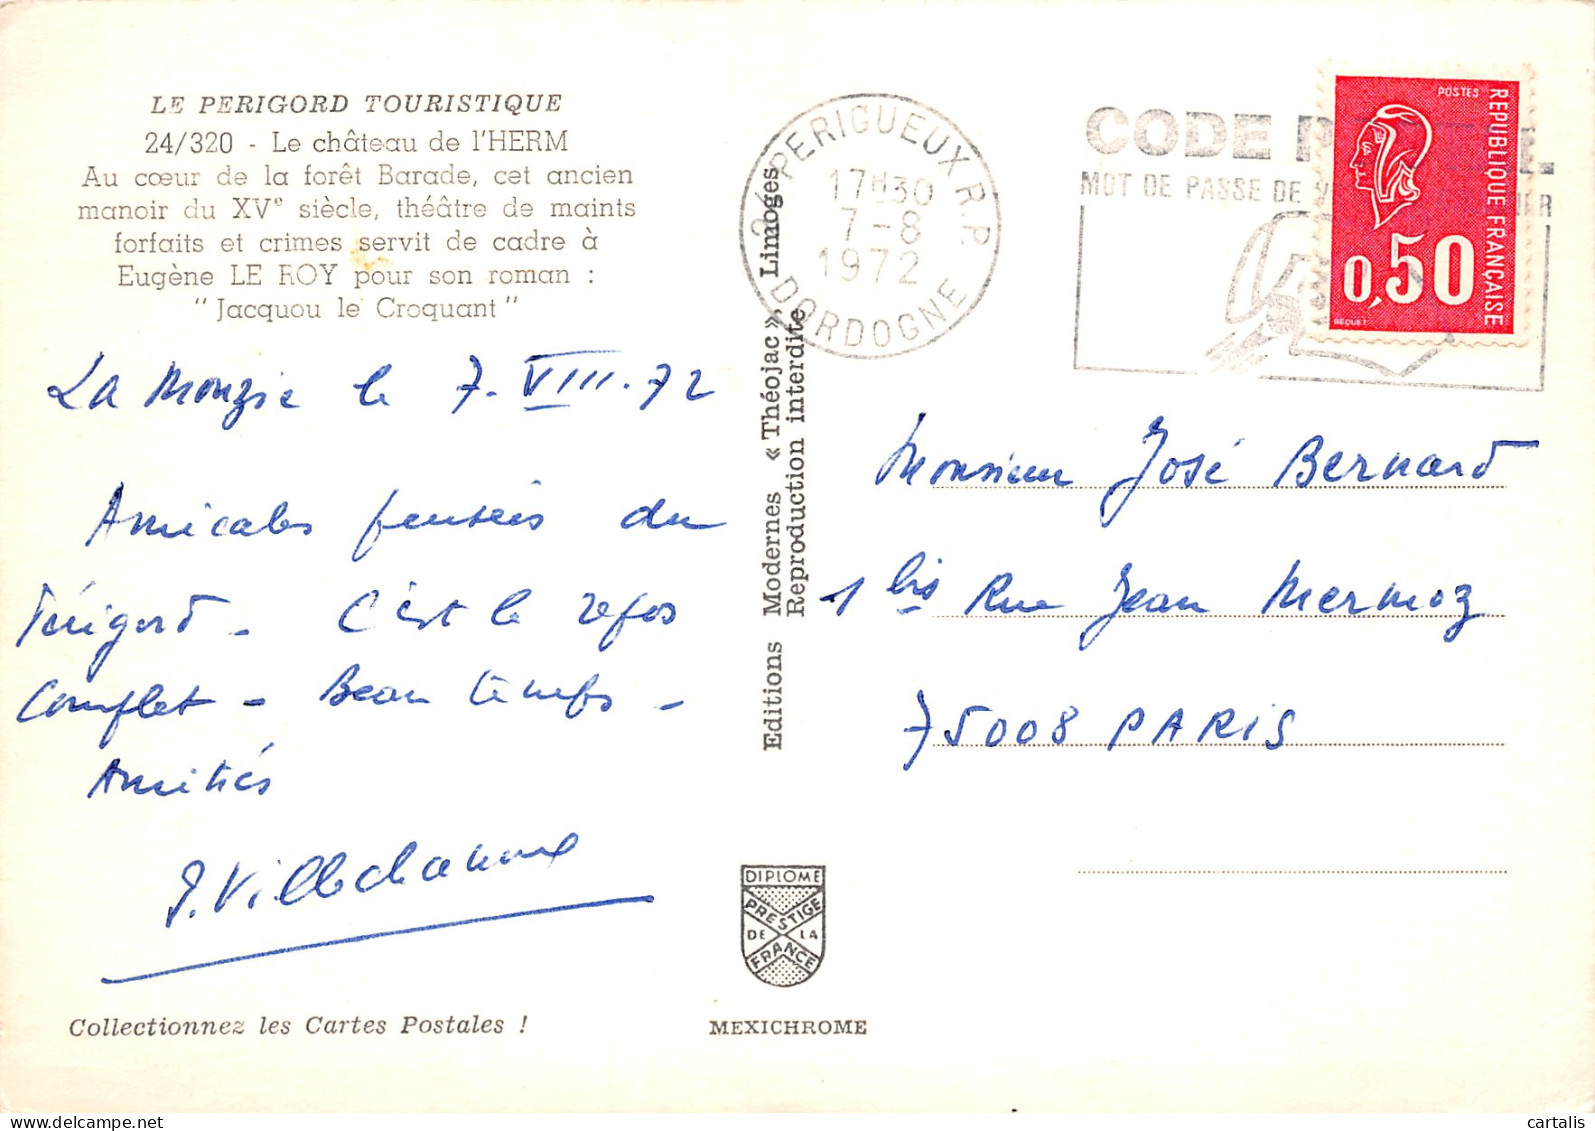 LE PERIGORD TOURISTIQUE
24/320 - Le château de l'HERM
Au cœur de la forêt Barade, cet ancien
manoir du XVe siècle, théâtre de maints
forfaits et crimes servit de cadre à
Eugène LE ROY pour son roman :
" Jacquou le Croquant "
La Monzie le 7.VIII.72
Amicales pensées du
Périgord - C'est le repos
Complet - Beau temps -
Amitiés
J. Villechanoux
Collectionnez les Cartes Postales !
Editions Modernes « Théojac », Limoges
Reproduction interdite
DIPLOME
PRESTIGE
DE LA
FRANCE
MEXICHROME
24 PERIGUEUX R.P.
17H30
7-8
1972
DORDOGNE
CODE P
MOT DE PASSE DE
POSTES
REPUBLIQUE FRANÇAISE
0,50
BEQUET
Monsieur José Bernard
1 bis Rue Jean Mermoz
75008 PARIS
cartalis